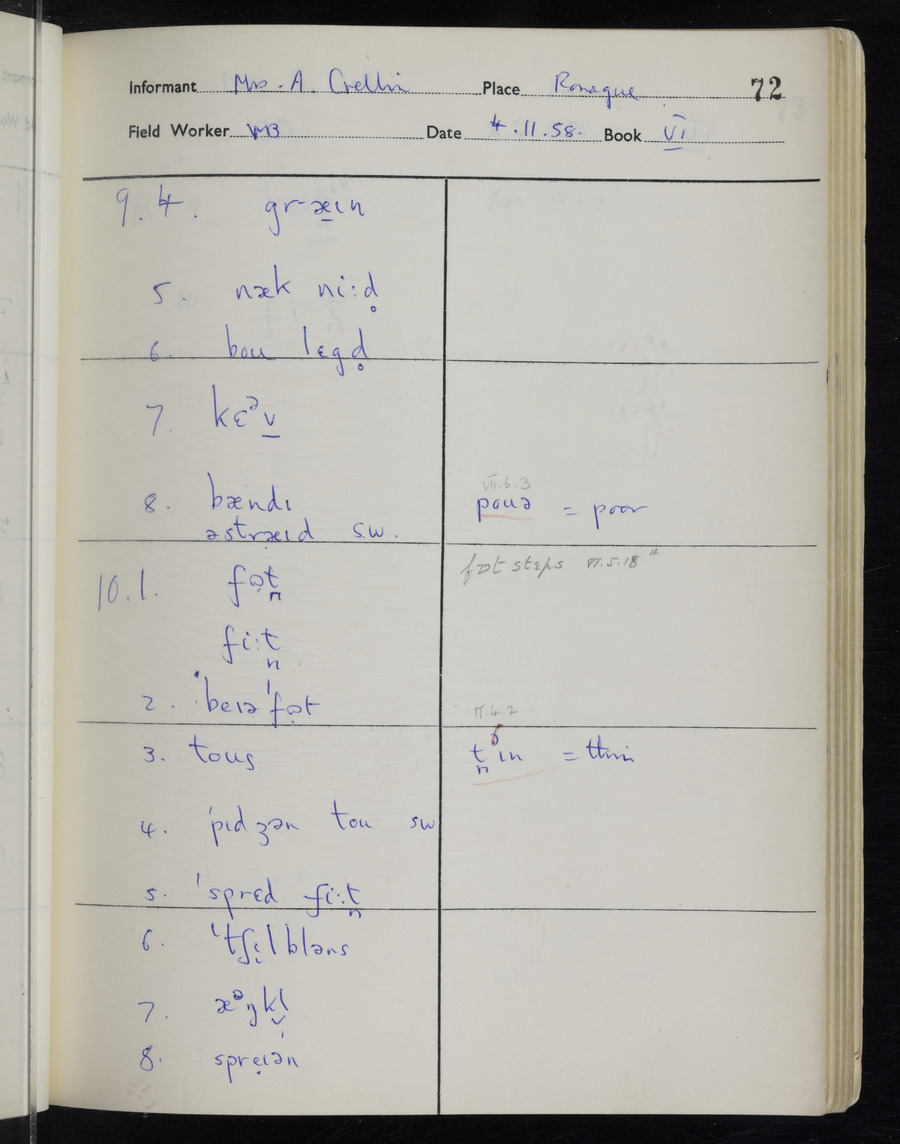 Informant Mrs. A. Crellin Place Ronague 72
Field Worker MB Date 4.11.58. Book VI
9.4. græ̱ɪn
5. næk ni:d̥
6. bou lɛgd̥
7. kɛᵊv̱
VII.6.3
8. bændɪ pouə = poor
əstræɪd s.w.
fɒt stɛps VI.5.18
10.1. fət̪
fi:t̪
2. ˈbeɪəˈfət
VI.4.2
3. tous t̪ᶞɪn = thin
4. ˈpɪdʒən tou sw
5. ˈsprɛd fi:t̪
6. ˈtʃɪlbləns
7. æᵊŋkl
8. spreɪən